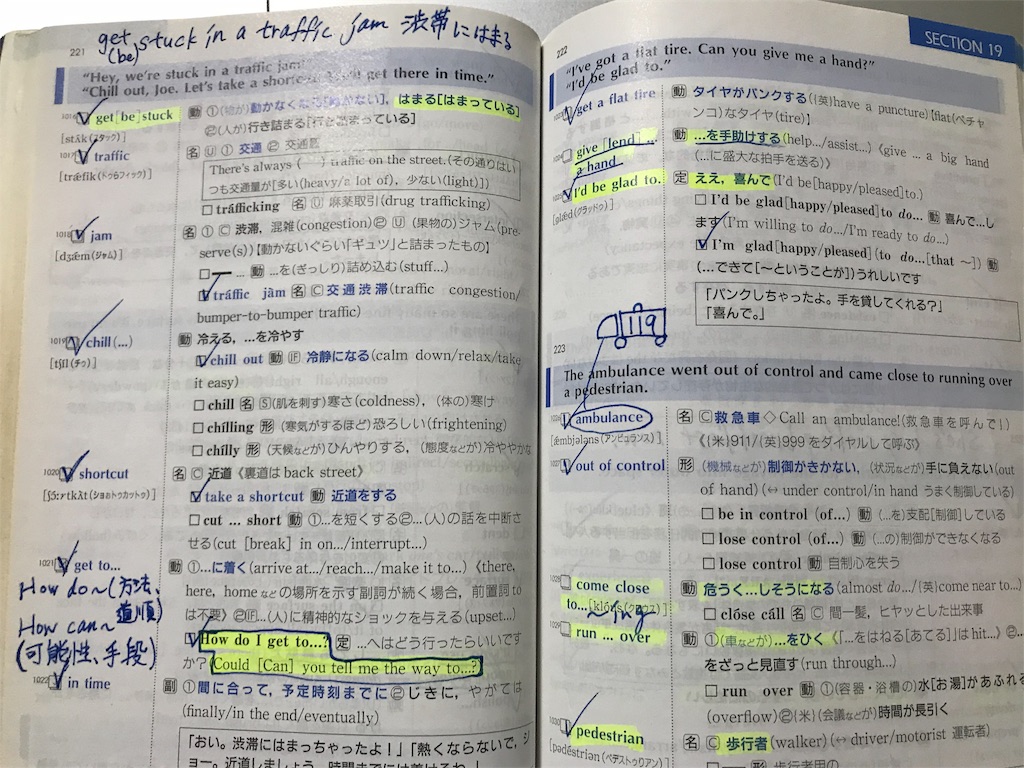 221
get stuck in a traffic jam 渋帯にはまる
(be)
"Hey, we're stuck in a traffic jam!
"Chill out, Joe. Let's take a shortcut get there in time."
1016 get[be]stuck 動 ①(物が)動かなくなる[動かない], はまる[はまっている]
[stʌ́k(スタック)] ②(人が)行き詰まる[行き詰まっている]
1017 traffic 名 Ⓤ ① 交通 ② 交通
[trǽfik(トゥらフィック)] There's always ( ) traffic on the street.(その通りはい
つも交通量が[多い(heavy/a lot of), 少ない(light)])
□ tráfficking 名 Ⓤ 麻薬取引(drug trafficking)
1018 jam 名 ① Ⓒ 渋滞, 混雑(congestion)② Ⓤ (果物の)ジャム(pre-
[dʒǽm(ジャム)] serve(s))【動かないぐらい「ギュツ」と詰まったもの】
□ ー ... 動 ...を(ぎっしり)詰め込む(stuff...)
□ tráffic jàm 名 Ⓒ 交通渋滞(traffic congestion/
bumper-to-bumper traffic)
1019 chill (...) 動 冷える, ...を冷やす
[tʃíl(チゥ)] □ chill out 動 IF 冷静になる(calm down/relax/take
it easy)
□ chill 名 Ⓢ(肌を刺す)寒さ(coldness), (体の)寒け
□ chílling 形 (寒気がするほど)恐ろしい(frightening)
□ chílly 形 (天候などが)ひんやりする, (態度などが)冷ややかな
1020 shortcut 名 Ⓒ 近道《裏道は back street》
[ʃɔ́ːrtkʌ̀t(ショぉトゥカットゥ)] □ take a shortcut 動 近道をする
□ cut ... short 動 ①...を短くする②...(人)の話を中断さ
せる(cut [break] in on.../interrupt...)
1021 get to... 動 ①...に着く(arrive at.../reach.../make it to...)《there,
here, home などの場所を示す副詞が続く場合, 前置詞 to
は不要》②IF...(人)に精神的なショックを与える(upset...)
How do~(方法、
道順)
How can~
(可能性、手段)
□ How do I get to...? 定 ...へはどう行ったらいいです
か? (Could [Can] you tell me the way to...?)
1022 in time 副 ①間に合って, 予定時刻までに②じきに, やがては
(finally/in the end/eventually)
「おい。渋滞にはまっちゃったよ!」「熱くならないで, ジ
ョー。近道しましょう。
222
SECTION 19
"I've got a flat tire. Can you give me a hand?"
"I'd be glad to."
get a flat tire 動 タイヤがパンクする((英)have a puncture)【flat(ペチャ
ンコ)なタイヤ(tire)】
give [lend] ... 動 ...を手助けする(help.../assist...)《give ... a big hand
a hand (...に盛大な拍手を送る)》
I'd be glad to. 定 ええ, 喜んで(I'd be[happy/pleased]to.)
[glǽd(グラッドゥ)] □ I'd be glad[happy/pleased]to do... 動 喜んで...し
ます(I'm willing to do.../I'm ready to do...)
□ I'm glad[happy/pleased](to do...[that ~]) 動
(...できて[~ということが])うれしいです
「パンクしちゃったよ。手を貸してくれる?」
「喜んで。」
119
223
The ambulance went out of control and came close to running over
a pedestrian.
1026 ambulance 名 Ⓒ 救急車 ◇Call an ambulance!(救急車を呼んで!)
[ǽmbjələns(アンビュランス)] 《(米)911/(英)999 をダイヤルして呼ぶ》
1027 out of control 形 (機械などが)制御がきかない, (状況などが)手に負えない(out
of hand) (↔ under control/in hand うまく制御している)
□ be in control (of...) 動 (...を)支配[制御]している
□ lose control (of...) 動 (...の)制御ができなくなる
□ lose control 動 自制心を失う
1028 come close 動 危うく...しそうになる(almost do.../(英)come near to...)
to...[klóus(クロウス)] □ clóse cáll 名 Ⓒ 間一髪, ヒヤッとした出来事
~ing
1029 run ... over 動 ①(車などが)...をひく《[...をはねる[あてる]]は hit...》②...
をざっと見直す(run through...)
□ run over 動 ①(容器・浴槽の)水[お湯]があふれる
(overflow)②(米)(会議などが)時間が長引く
1030 pedestrian 名 Ⓒ 歩行者(walker) (↔ driver/motorist 運転者)
[pədéstriən(ペデストゥリアン)] □ ー 形 歩行者用の